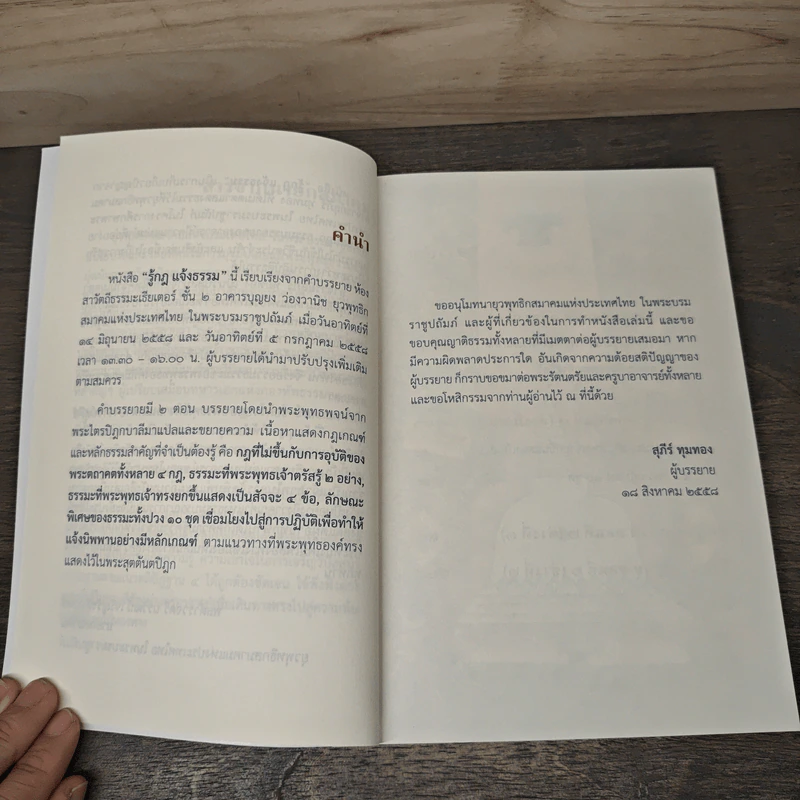 คำนำ
หนังสือ “รู้กฎ แจ้งธรรม” นี้ เรียบเรียงจากคำบรรยาย ห้อง
สาวัตถีธรรมะเธียเตอร์ ชั้น ๒ อาคารบุญยง ว่องวานิช ยุวพุทธิก
สมาคมแห่งประเทศไทย ในพระบรมราชูปถัมภ์ เมื่อวันอาทิตย์ที่
๑๔ มิถุนายน ๒๕๕๘ และ วันอาทิตย์ที่ ๕ กรกฎาคม ๒๕๕๘
เวลา ๑๓.๓๐ – ๑๖.๐๐ น. ผู้บรรยายได้นำมาปรับปรุงเพิ่มเติม
ตามสมควร
คำบรรยายมี ๒ ตอน บรรยายโดยนำพระพุทธพจน์จาก
พระไตรปิฎกบาลีมาแปลและขยายความ เนื้อหาแสดงกฎเกณฑ์
และหลักธรรมสำคัญที่จำเป็นต้องรู้ คือ กฎที่ไม่ขึ้นกับการอุบัติของ
พระตถาคตทั้งหลาย ๔ กฎ, ธรรมะที่พระพุทธเจ้าตรัสรู้ ๒ อย่าง,
ธรรมะที่พระพุทธเจ้าทรงยกขึ้นแสดงเป็นสัจจะ ๔ ข้อ, ลักษณะ
พิเศษของธรรมะทั้งปวง ๑๐ ชุด เชื่อมโยงไปสู่การปฏิบัติเพื่อทำให้
แจ้งนิพพานอย่างมีหลักเกณฑ์ ตามแนวทางที่พระพุทธองค์ทรง
แสดงไว้ในพระสุตตันตปิฎก
ขออนุโมทนายุวพุทธิกสมาคมแห่งประเทศไทย ในพระบรม
ราชูปถัมภ์ และผู้ที่เกี่ยวข้องในการทำหนังสือเล่มนี้ และขอ
ขอบคุณญาติธรรมทั้งหลายที่มีเมตตาต่อผู้บรรยายเสมอมา หาก
มีความผิดพลาดประการใด อันเกิดจากความด้อยสติปัญญาของ
ผู้บรรยาย ก็กราบขอขมาต่อพระรัตนตรัยและครูบาอาจารย์ทั้งหลาย
และขอโหสิกรรมจากท่านผู้อ่านไว้ ณ ที่นี้ด้วย
สุภีร์ ทุมทอง
ผู้บรรยาย
๑๘ สิงหาคม ๒๕๕๘